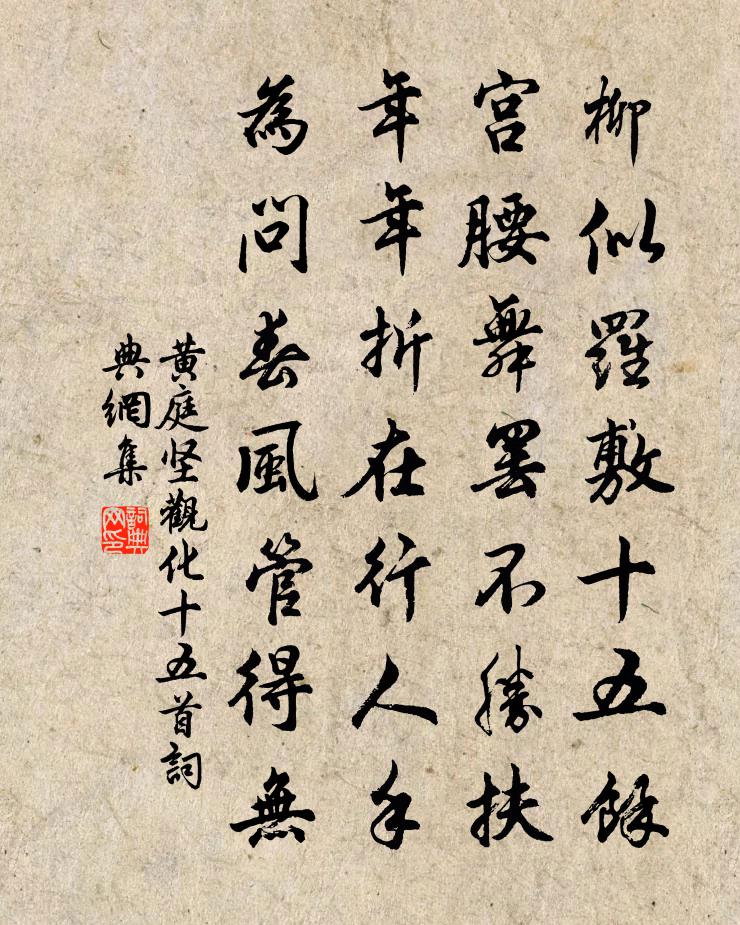 柳似羅敷十五餘
宮腰舞罷不勝扶
年年折在行人手
為問春風管得無
黃庭坚觀化十五首詞
典網集
詞典網印